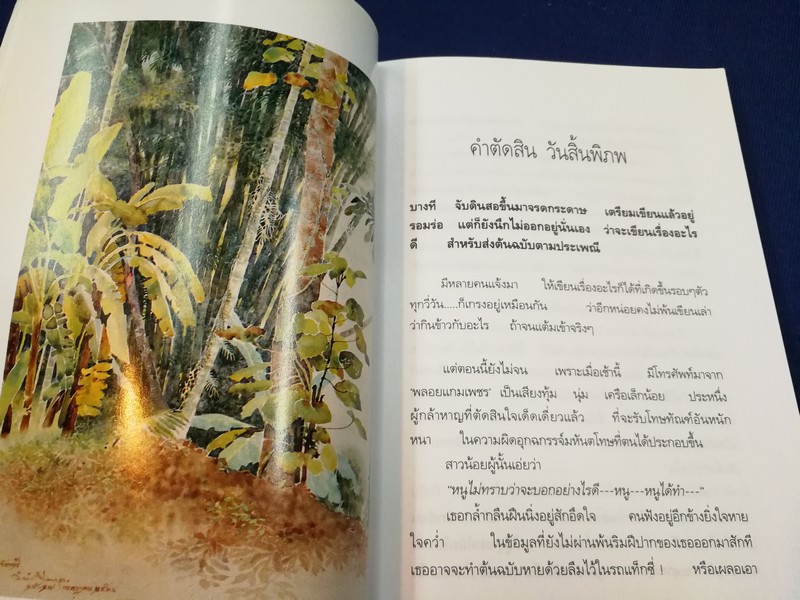 คำตัดสิน วันสิ้นพิภพ
บางที จับดินสอขึ้นมาจรดกระดาษ เตรียมเขียนแล้วอยู่
รอมร่อ แต่ก็ยังนึกไม่ออกอยู่นั่นเอง ว่าจะเขียนเรื่องอะไร
ดี สำหรับส่งต้นฉบับตามประเพณี
มีหลายคนแจ้งมา ให้เขียนเรื่องอะไรก็ได้ที่เกิดขึ้นรอบๆตัว
ทุกวี่วัน.....ก็เกรงอยู่เหมือนกัน ว่าอีกหน่อยคงไม่พ้นเขียนเล่า
ว่ากินข้าวกับอะไร ถ้าจนแต้มเข้าจริงๆ
แต่ตอนนี้ยังไม่จน เพราะเมื่อเช้านี้ มีโทรศัพท์มาจาก
‘พลอยแกมเพชร’ เป็นเสียงทุ้ม นุ่ม เครือเล็กน้อย ประหนึ่ง
ผู้กล้าหาญที่ตัดสินใจเด็ดเดี่ยวแล้ว ที่จะรับโทษทัณฑ์อันหนัก
หนา ในความผิดอุกฉกรรจ์มหันตโทษที่ตนได้ประกอบขึ้น
สาวน้อยผู้นั้นเอ่ยว่า
“หนูไม่ทราบว่าจะบอกอย่างไรดี---หนู---หนูได้ทำ---”
เธอกล้ำกลืนฝืนนิ่งอยู่สักอึดใจ คนฟังอยู่อีกข้างยิ่งใจหาย
ใจคว่ำ ในข้อมูลที่ยังไม่ผ่านพ้นริมฝีปากของเธอออกมาสักที
เธออาจจะทำต้นฉบับหายด้วยลืมไว้ในรถแท็กซี่ ! หรือเผลอเอา